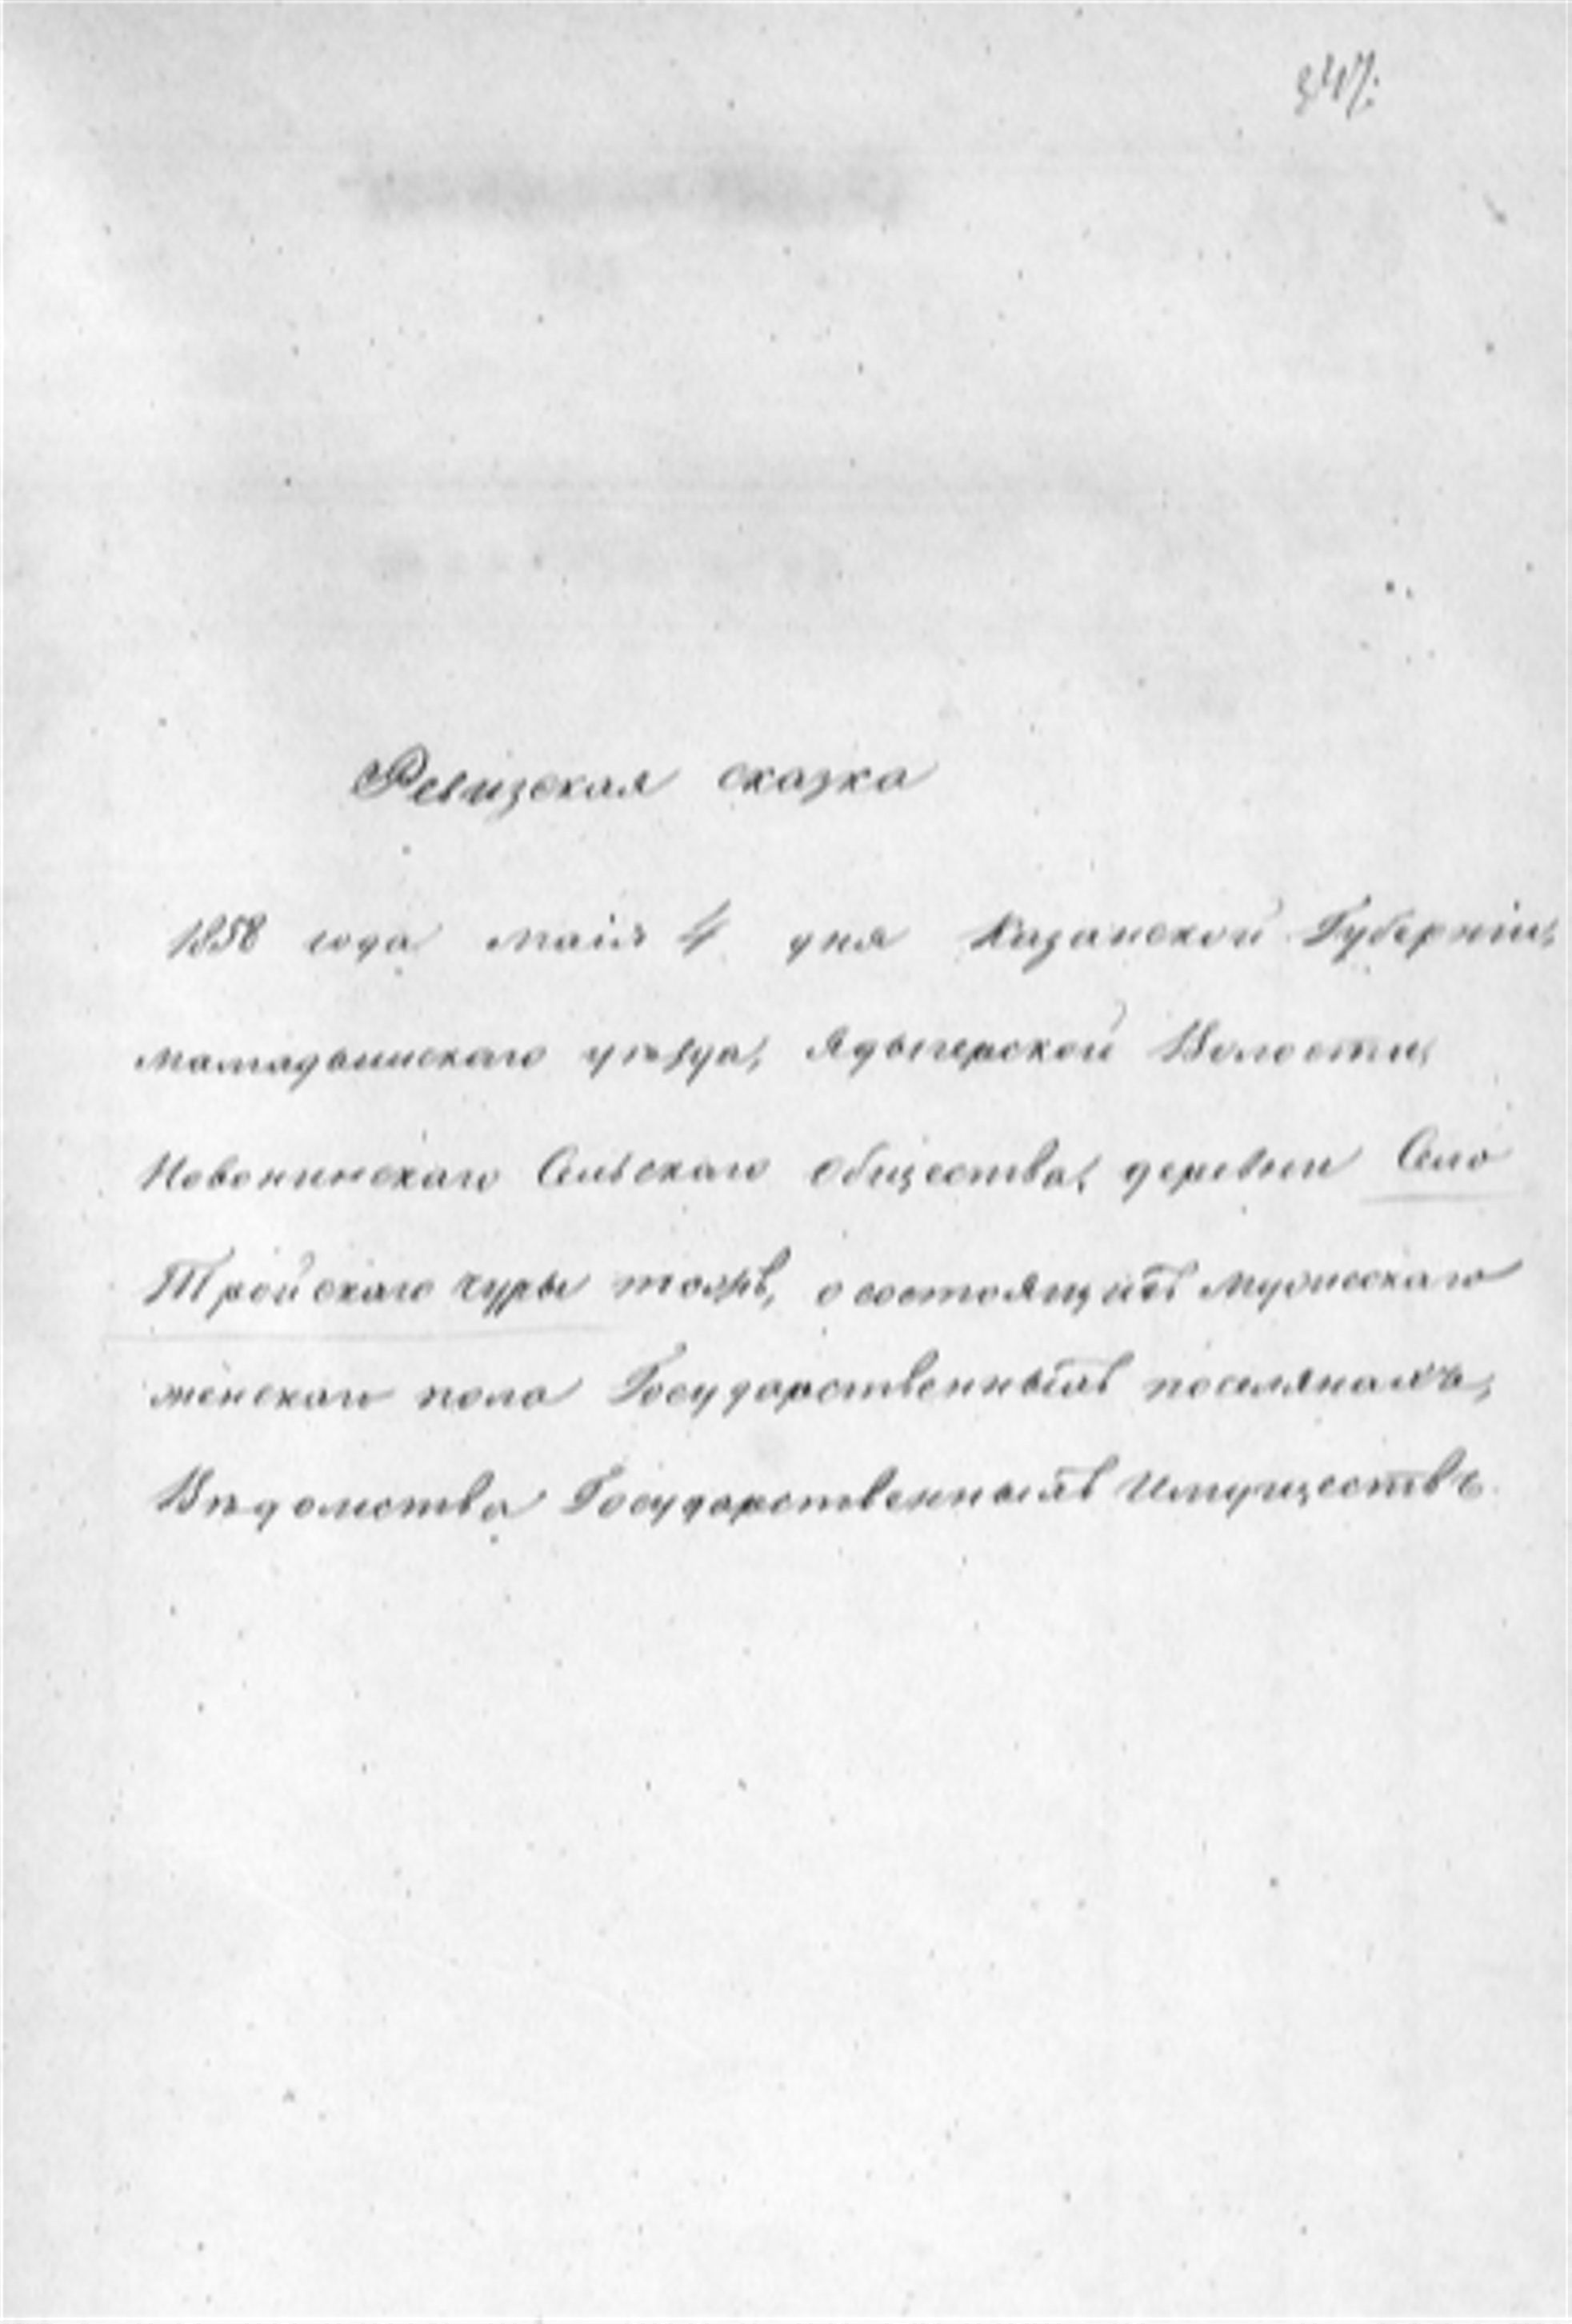 347.
Ревизская сказка
1858 года маія 4 дня Казанской Губерніи,
мамадышскаго уѣзда, Ядыгерской Волости,
Сельскаго Общества, деревни Село
Тройскаго чуры тожъ, о состоящихъ мужескаго
женскаго пола Государственныхъ поселянахъ,
Вѣдомства Государственныхъ Имуществъ.